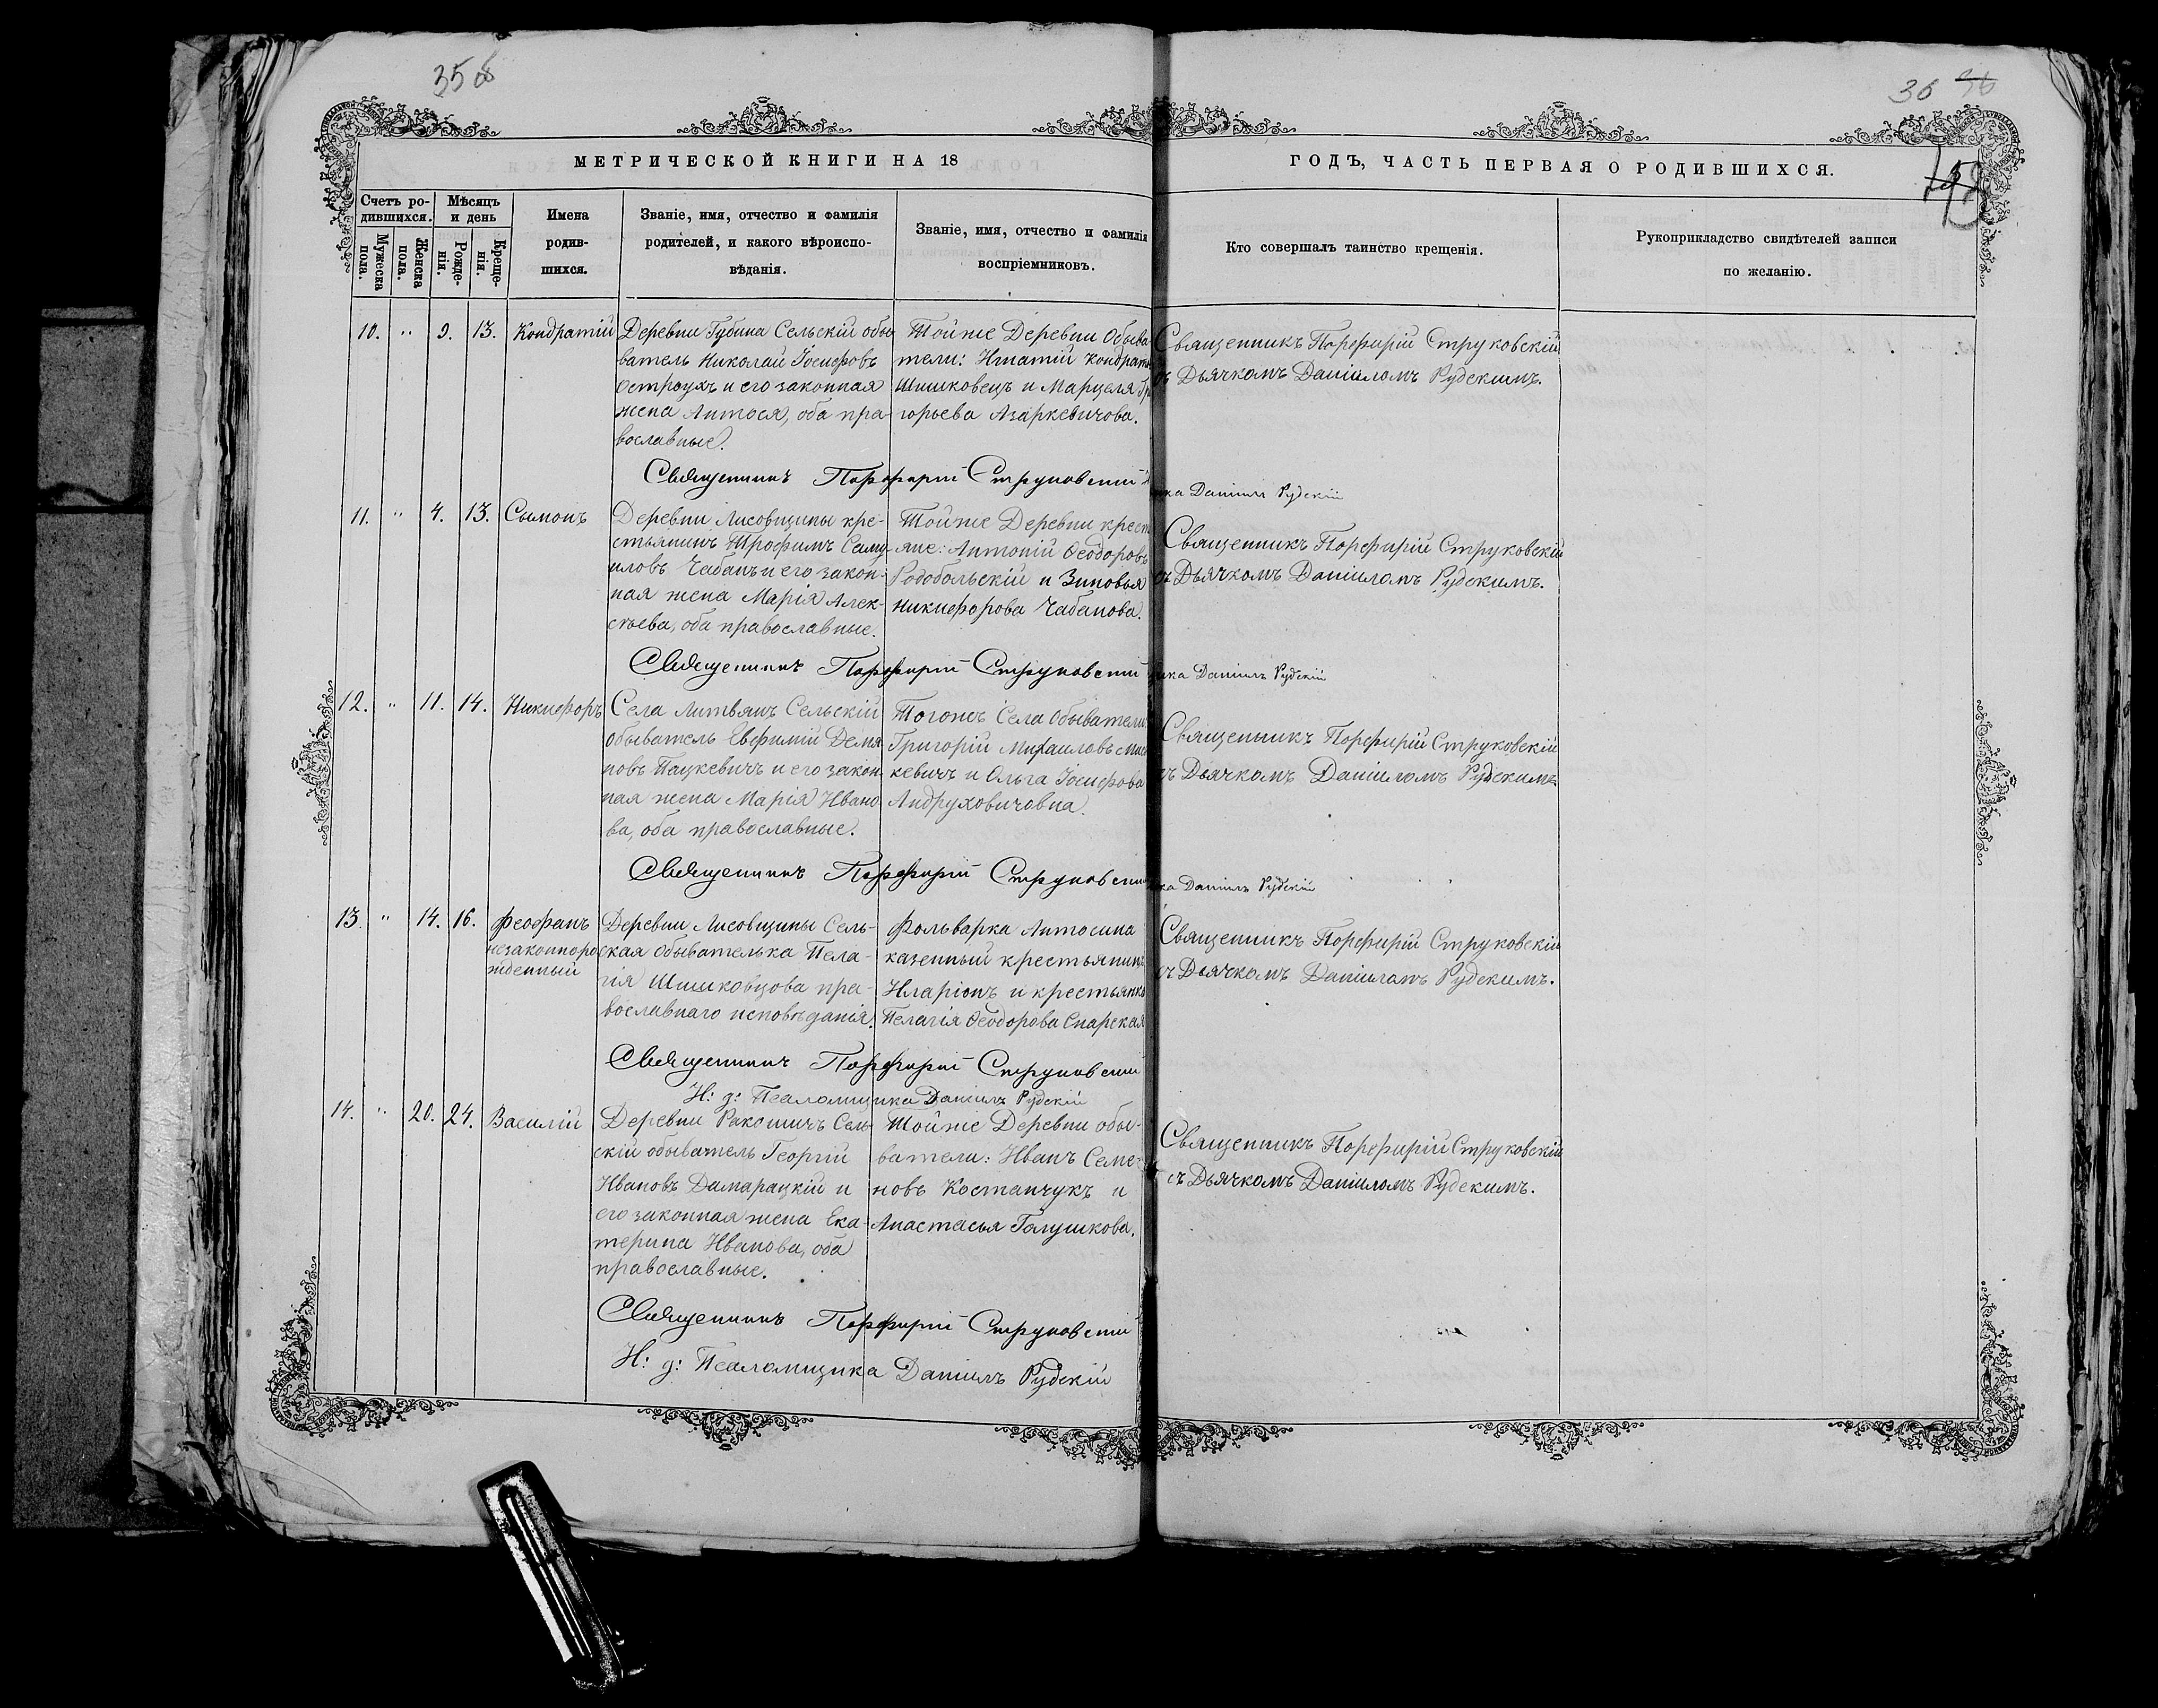 35 об
36 36
МЕТРИЧЕСКОЙ КНИГИ НА 18
ГОДЪ, ЧАСТЬ ПЕРВАЯ О РОДИВШИХСЯ.
Счетъ ро-
дившихся.
Мѣсяцъ
и день
Мужеска
пола.
Женска
пола.
Рожде-
нія.
Креще-
нія.
Имена
родив-
шихся.
Званіе, имя, отчество и фамилія
родителей, и какого вѣроиспо-
вѣданія.
Званіе, имя, отчество и фамилія
воспріемниковъ.
Кто совершалъ таинство крещенія.
Рукоприкладство свидѣтелей записи
по желанію.
10. " 9. 13. Кондратій
Деревни Губина Сельскій обы-
ватель Николай Іосифовъ
Остроухъ и его законная
жена Антося, оба пра-
вославные.
Тойже Деревни Обыва
тели: Игнатій Кондрать
Шишковецъ и Марцеля Гри
горьева Азаркевичова.
Священникъ Порфирій Струковскій
съ Дьячкомъ Даніиломъ Рудскимъ.
Священникъ Порфирій Струковскій
ика Даніилъ Рудскій
11. " 4. 13. Сымонъ
Деревни Лисовщины кре-
стьянинъ Трофимъ Саму-
иловъ Чабанъ и его закон-
ная жена Марія Алек-
сѣева, оба православные.
Тойже Деревни крест
яне: Антоній Ѳеодоровъ
Родобольскій и Зиновья
Никифорова Чабанова.
Священникъ Порфирій Струковскій
съ Дьячкомъ Даніиломъ Рудскимъ.
Священникъ Порфирій Струковскій
ика Даніилъ Рудскій
12. " 11. 14. Никифоръ
Села Литвянъ Сельскій
обыватель Евфимій Демя
новъ Пацкевичъ и его закон
ная жена Марія Ивано
ва, оба православные.
Тогожъ Села Обыватели
Григорій Михаиловъ
кевичъ и Ольга Іосифова
Андруховичовна.
Священникъ Порфирій Струковскій
съ Дьячкомъ Даніиломъ Рудскимъ
Священникъ Порфирій Струковскій
ика Даніилъ Рудскій
13. " 14. 16. Феофанъ
незаконноро
жденный
Деревни Лисовщины Сель-
ская обывателька Пела-
гія Шишковцова пра-
вославнаго исповѣданія.
Фольварка Антосина
казенный крестьянинъ
Иларіонъ и крестьянка
Пелагія Ѳеодорова Снарская
Священникъ Порфирій Струковскій
съ Дьячкомъ Даніиломъ Рудскимъ.
Священникъ Порфирій Струковскій
И: д: Псаломщика Даніилъ Рудскій
14. " 20. 24. Василій
Деревни Ракошичъ Сель-
скій обыватель Георгій
Ивановъ Дамарацкій и
его законная жена Ека-
терина Иванова, оба
православные.
Тойже Деревни обы-
ватели: Иванъ Семе-
новъ Костанчукъ и
Анастасья Галушкова.
Священникъ Порфирій Струковскій
съ Дьячкомъ Даніиломъ Рудскимъ.
Священникъ Порфирій Струковскій
И: д: Псаломщика Даніилъ Рудскій